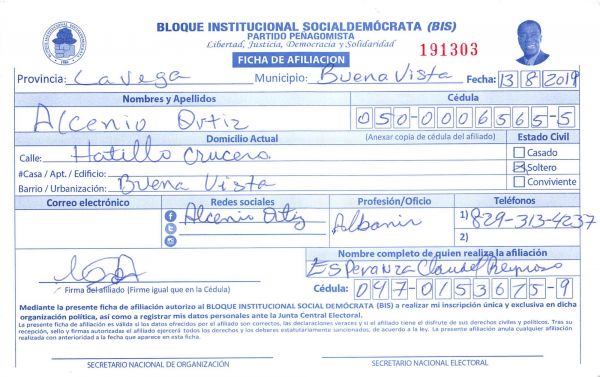 BLOQUE INSTITUCIONAL SOCIALDEMÓCRATA (BIS)
PARTIDO PEÑAGOMISTA
Libertad, Justicia, Democracia y Solidaridad
FICHA DE AFILIACION
191303
Provincia: La Vega Municipio: Buena Vista Fecha: 13/8/2019
Nombres y Apellidos
Cédula
Alcenio Ortiz
050-0006565-5
Domicilio Actual
(Anexar copia de cédula del afiliado)
Estado Civil
Calle: Hatillo Crucero
Casado
#Casa / Apt. / Edificio:
Soltero
Barrio / Urbanización: Buena Vista
Conviviente
Correo electrónico
Redes sociales
Profesión/Oficio
Teléfonos
Alcenio Ortiz
Albanir
1) 829-313-4237
2)
Nombre completo de quien realiza la afiliación
Esperanza Claudel Reynoso
Firma del afiliado (Firme igual que en la Cédula)
Cédula: 047-0153675-9
Mediante la presente ficha de afiliación autorizo al BLOQUE INSTITUCIONAL SOCIAL DEMÓCRATA (BIS) a realizar mi inscripción única y exclusiva en dicha
organización política, así como a registrar mis datos personales ante la Junta Central Electoral.
La presente ficha de afiliación es válida si los datos ofrecidos por el afiliado son correctos, las declaraciones veraces y si el afiliado tiene el disfrute de sus derechos civiles y políticos. Tras su
recepción, sello y firmas autorizadas el afiliado ejercerá todos los derechos y los deberes estatutariamente sancionados; de acuerdo a la ley. La presente afiliación anula cualquier afiliación
realizada con anterioridad a la fecha que aparece en esta ficha.
SECRETARIO NACIONAL DE ORGANIZACIÓN
SECRETARIO NACIONAL ELECTORAL